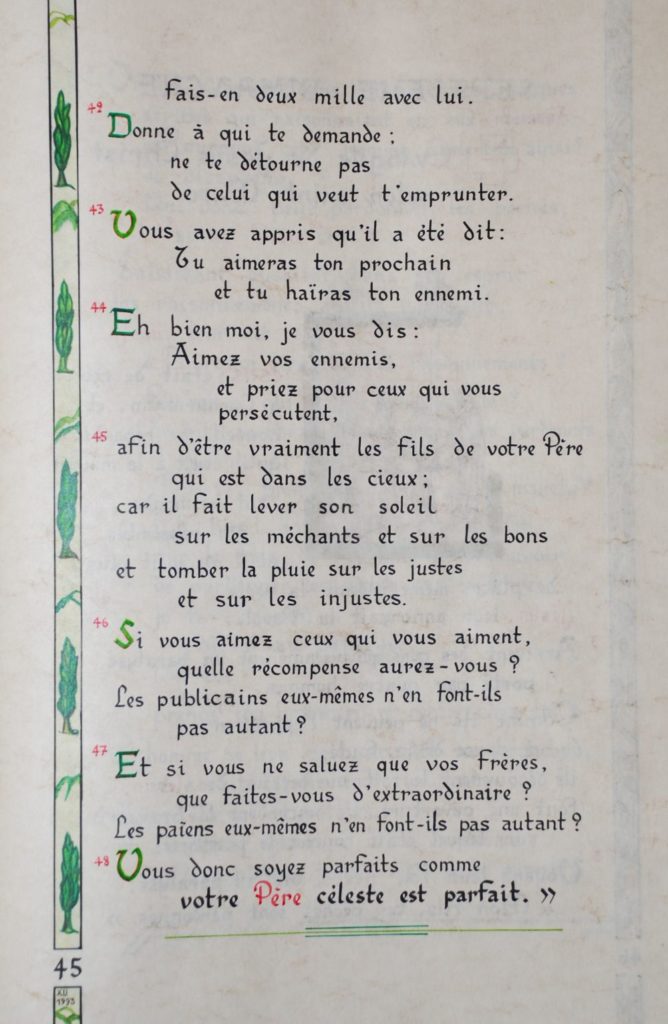 fais-en deux mille avec lui.
42
Donne à qui te demande ;
ne te détourne pas
de celui qui veut t'emprunter.
43
Vous avez appris qu'il a été dit :
Tu aimeras ton prochain
et tu haïras ton ennemi.
44
Eh bien moi, je vous dis :
Aimez vos ennemis,
et priez pour ceux qui vous
persécutent,
45
afin d'être vraiment les fils de votre Père
qui est dans les cieux ;
car il fait lever son soleil
sur les méchants et sur les bons
et tomber la pluie sur les justes
et sur les injustes.
46
Si vous aimez ceux qui vous aiment,
quelle récompense aurez-vous ?
Les publicains eux-mêmes n'en font-ils
pas autant ?
47
Et si vous ne saluez que vos frères,
que faites-vous d'extraordinaire ?
Les païens eux-mêmes n'en font-ils pas autant ?
48
Vous donc soyez parfaits comme
votre Père céleste est parfait. »
45
XII
1993